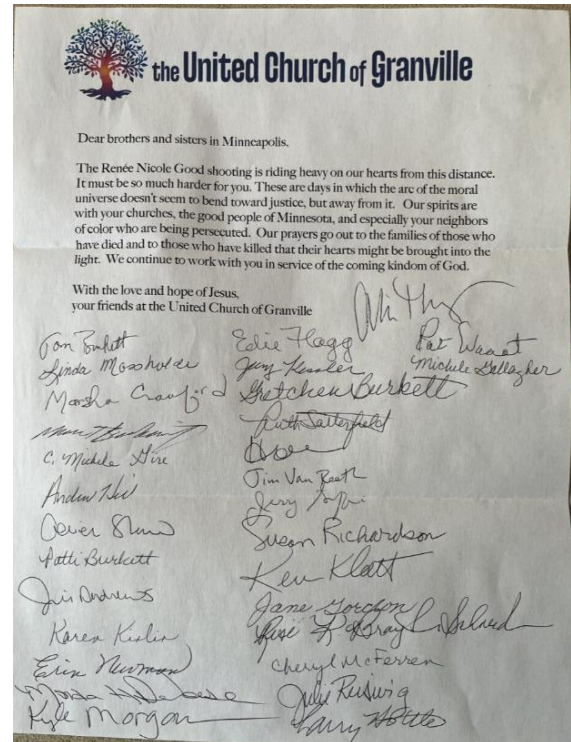 the United Church of Granville
Dear brothers and sisters in Minneapolis.
The Renée Nicole Good shooting is riding heavy on our hearts from this distance.
It must be so much harder for you. These are days in which the arc of the moral
universe doesn't seem to bend toward justice, but away from it. Our spirits are
with your churches, the good people of Minnesota, and especially your neighbors
of color who are being persecuted. Our prayers go out to the families of those who
have died and to those who have killed that their hearts might be brought into the
light. We continue to work with you in service of the coming kingdom of God.
With the love and hope of Jesus,
your friends at the United Church of Granville
Burkett
Linda Mossholder
Marsha Crawford
C. Michele
Patti Burkett
Andrews
Karen
Erin Newman
Kyle Morgan
Edie Flagg
Gretchen Burkett
Ruth Satterfield
Jim Van
Jerry
Susan Richardson
Ken Klatt
Jane
Cheryl McFerren
Julie
Larry
Pat
Michele Gallagher